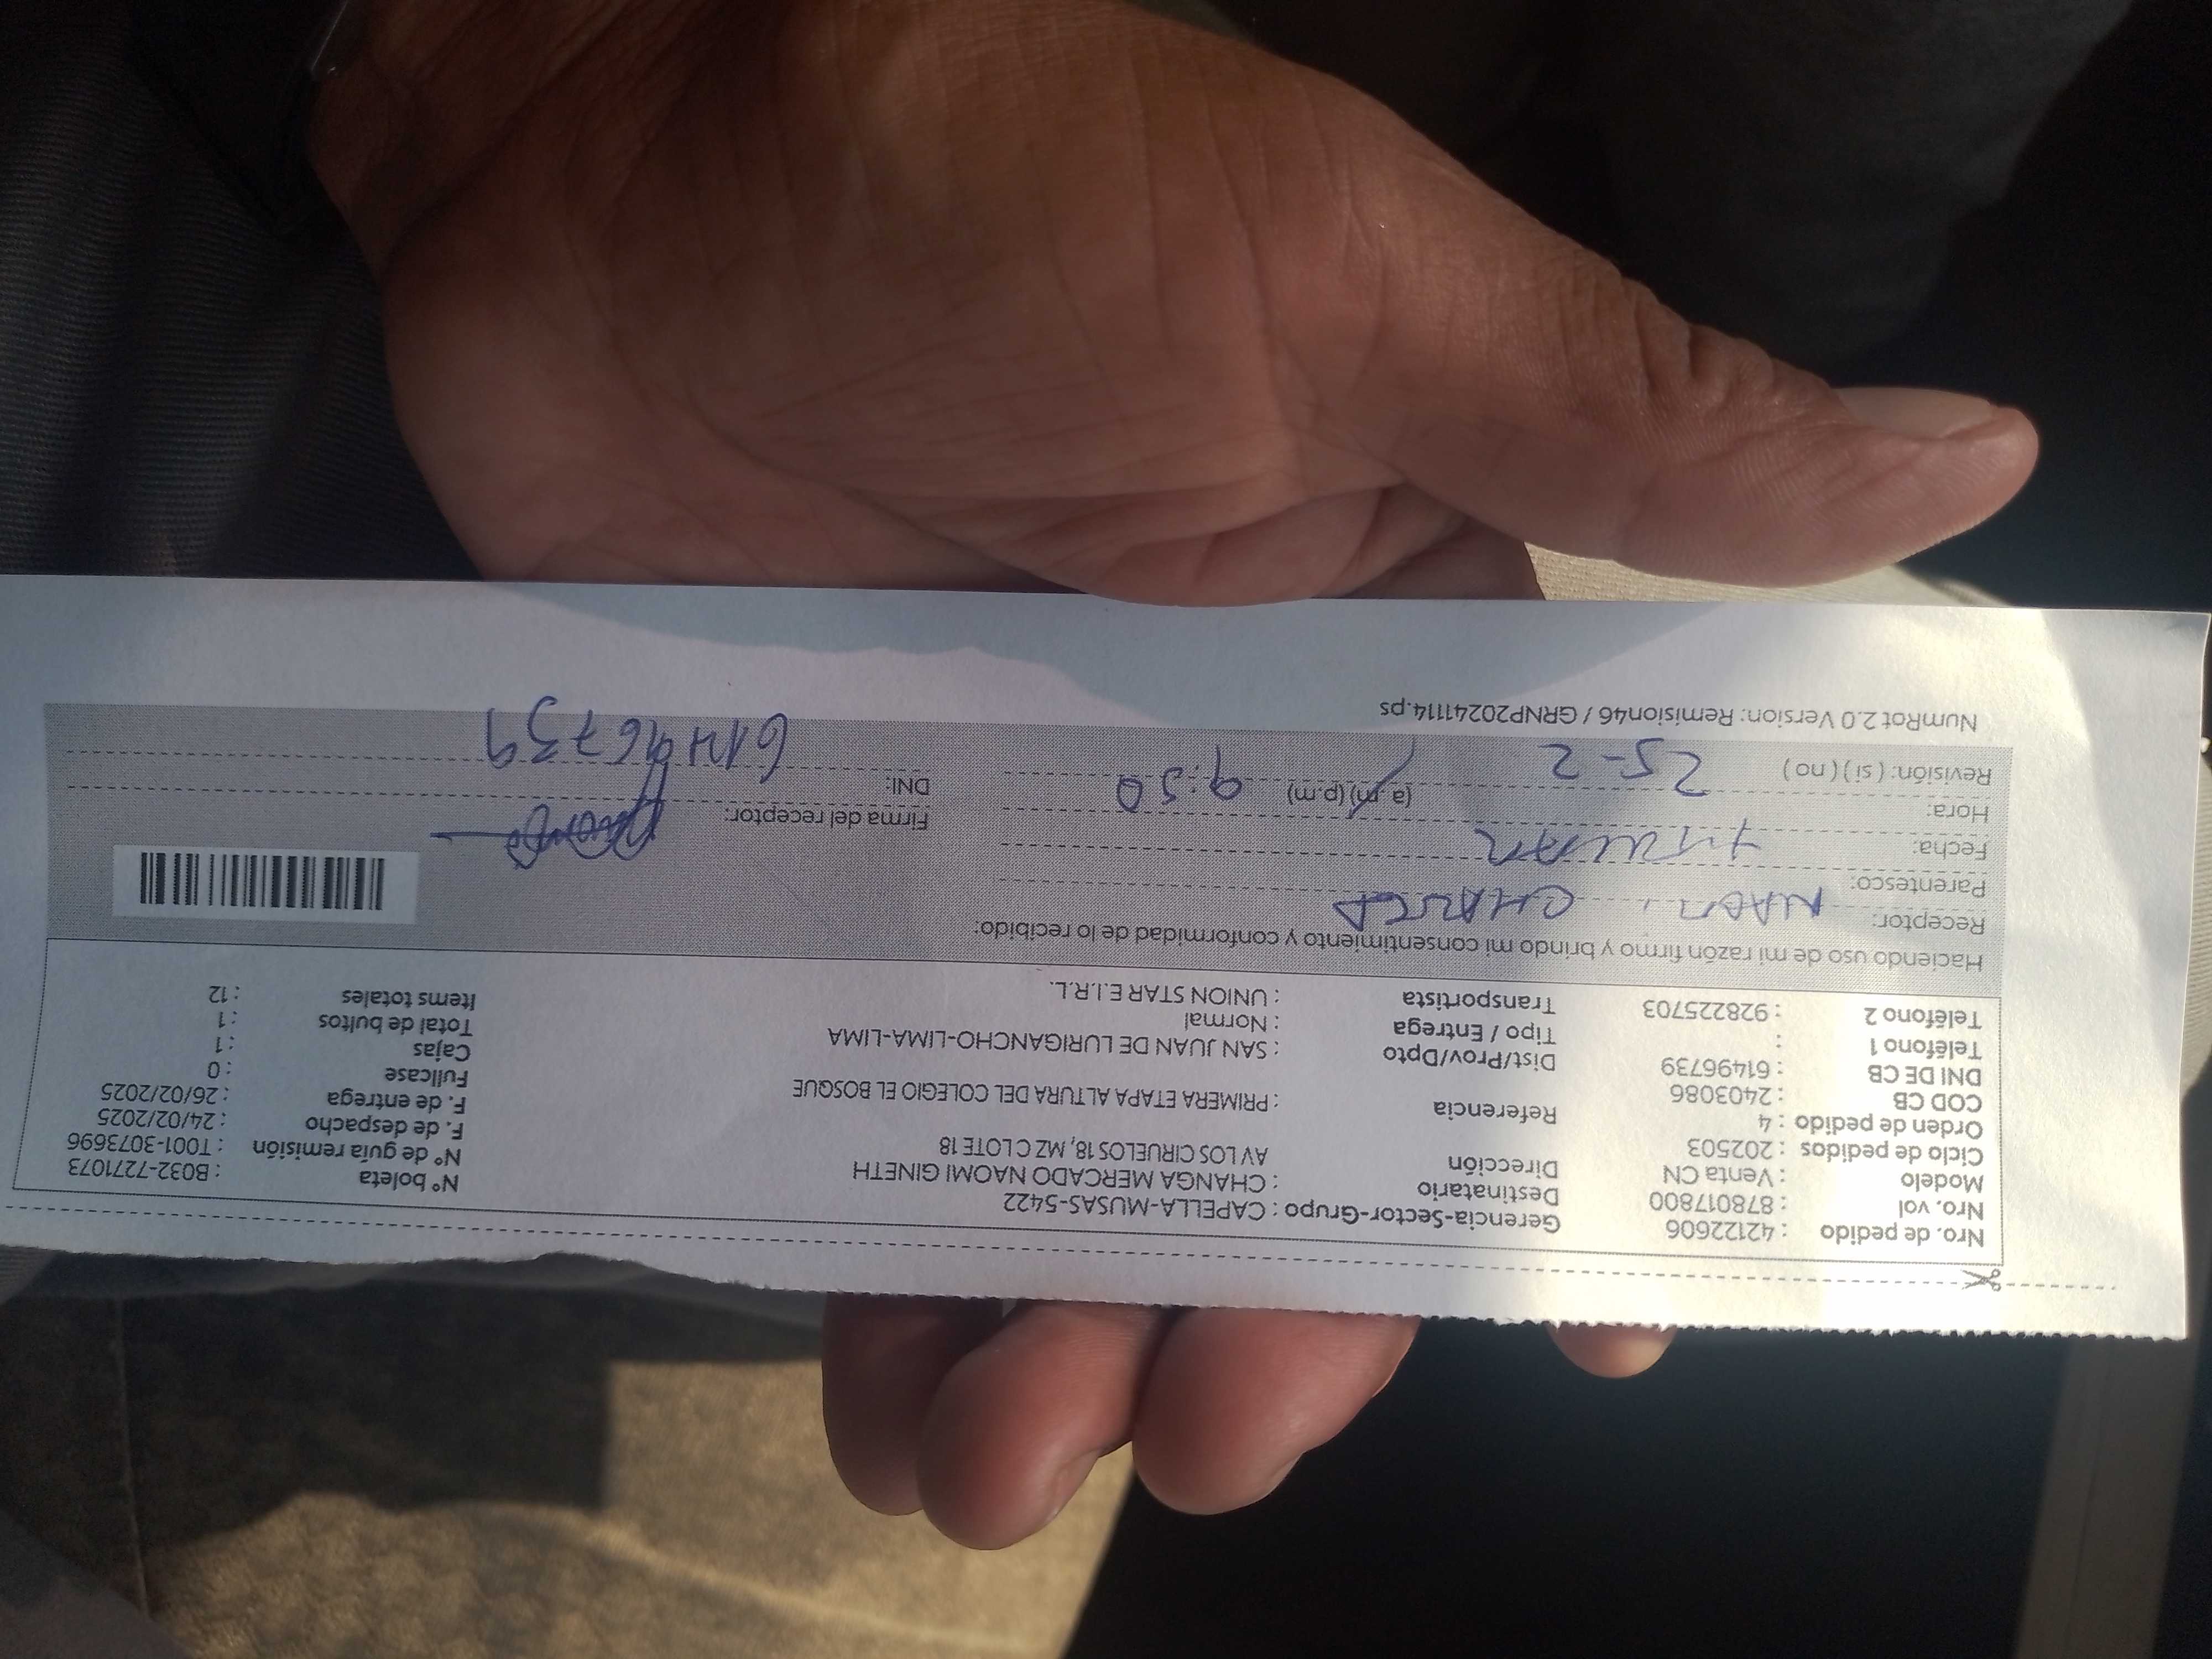 Nro. de pedido : 42122606 Gerencia-Sector-Grupo : CAPELLA-MUSAS-5422 N° boleta : B032-7271073
Nro. vol : 878017800 Destinatario : CHANGA MERCADO NAOMI GINETH N° de guía remisión : T001-3073696
Modelo : Venta CN Dirección AV LOS CIRUELOS 18, MZ C LOTE 18 F. de despacho : 24/02/2025
Ciclo de pedidos : 202503 F. de entrega : 26/02/2025
Orden de pedido : 4 Referencia : PRIMERA ETAPA ALTURA DEL COLEGIO EL BOSQUE Fullcase : 0
COD CB : 2403086 Cajas : 1
DNI DE CB : 61496739 Dist/Prov/Dpto : SAN JUAN DE LURIGANCHO-LIMA-LIMA Total de bultos : 1
Teléfono 1 : Tipo / Entrega : Normal Items totales : 12
Teléfono 2 : 928225703 Transportista : UNION STAR E.I.R.L.
Haciendo uso de mi razón firmo y brindo mi consentimiento y conformidad de lo recibido:
Receptor: CHANGA
Parentesco: TITULAR
Fecha: Firma del receptor:
Hora: (a.m) (p.m) 9:50 DNI: 61496739
Revisión: ( si ) ( no ) 25-2
NumRot 2.0 Version: Remision46 / GRNP20241114.ps